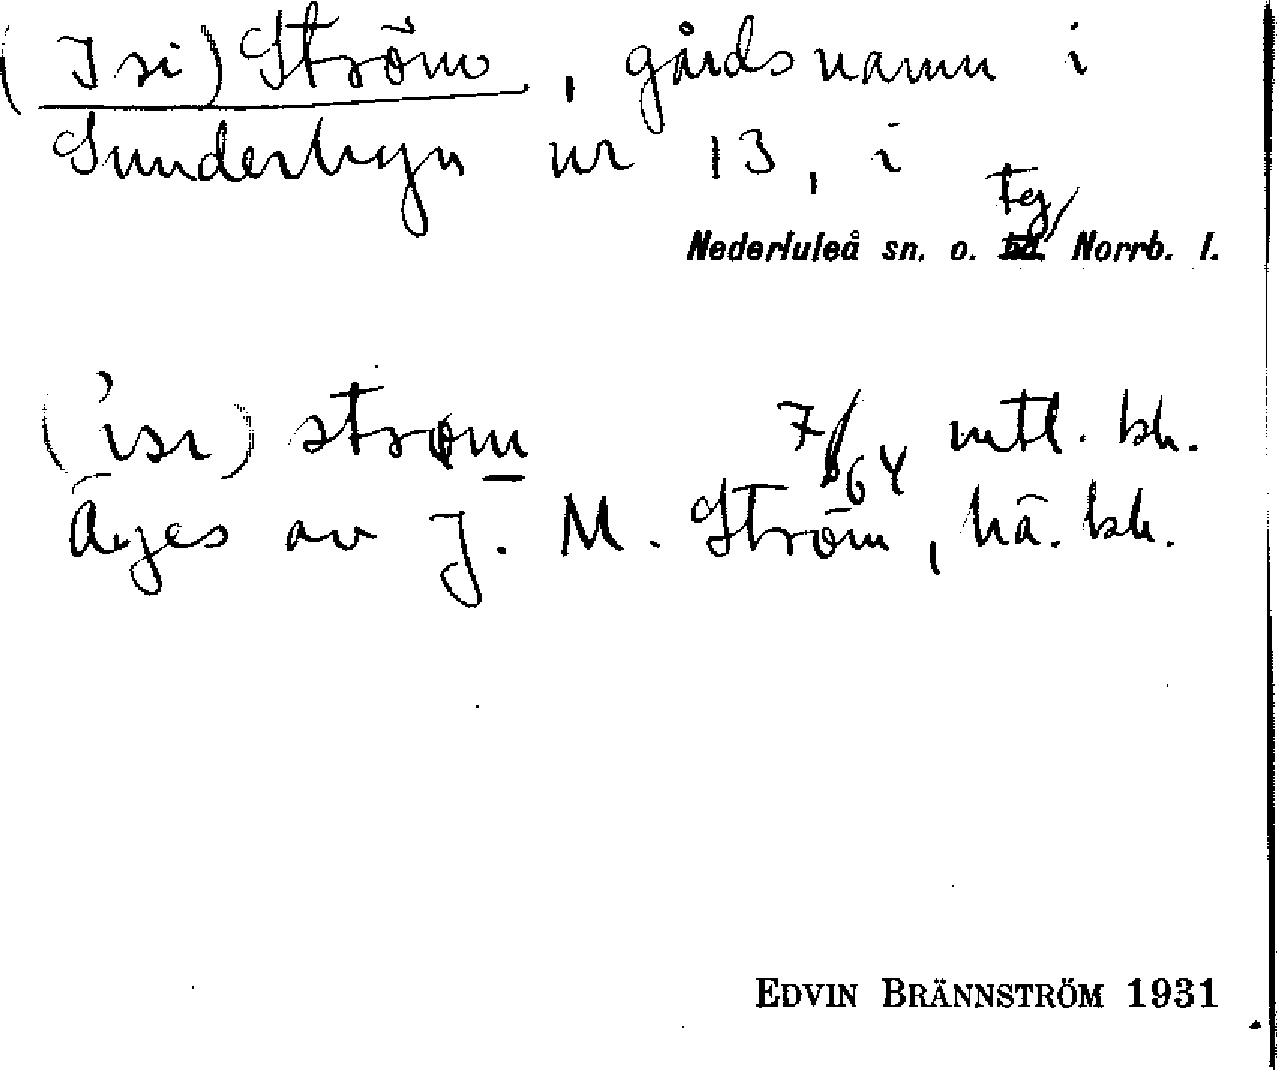 (Isi) Ström, gårdsnamn i
Sunderbyn nr 13, i
tg
Nederluleå sn. o. Norrb. l.
(ısı) strøm 7/64 mtl. bk.
Äges av J. M. Ström, hä. bk.
EDVIN BRÄNNSTRÖM 1931